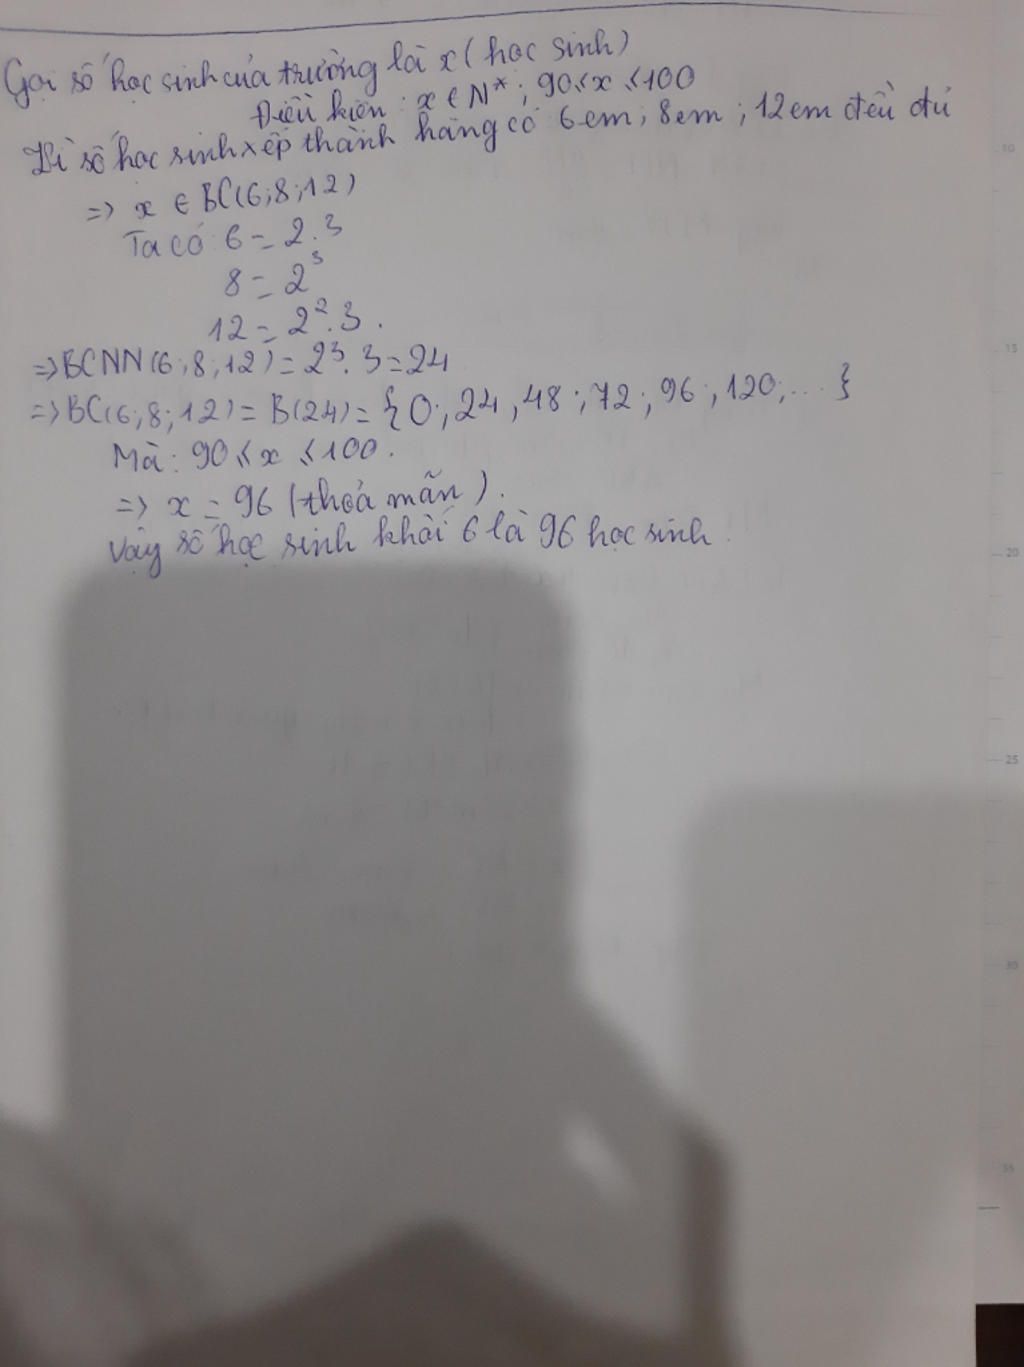 Gọi số học sinh của trường là x (học sinh)
Điều kiện: x ∈ N*; 90 ≤ x ≤ 100
Vì số học sinh xếp thành hàng có 6 em; 8 em; 12 em đều đủ
=> x ∈ BC(6;8;12)
Ta có 6 = 2.3
8 = 2³
12 = 2².3.
=> BCNN(6;8;12) = 2³.3 = 24
=> BC(6;8;12) = B(24) = {0; 24; 48; 72; 96; 120; ... }
Mà: 90 ≤ x ≤ 100.
=> x = 96 (thoả mãn).
Vậy số học sinh khối 6 là 96 học sinh.
10
15
20
25
30
35